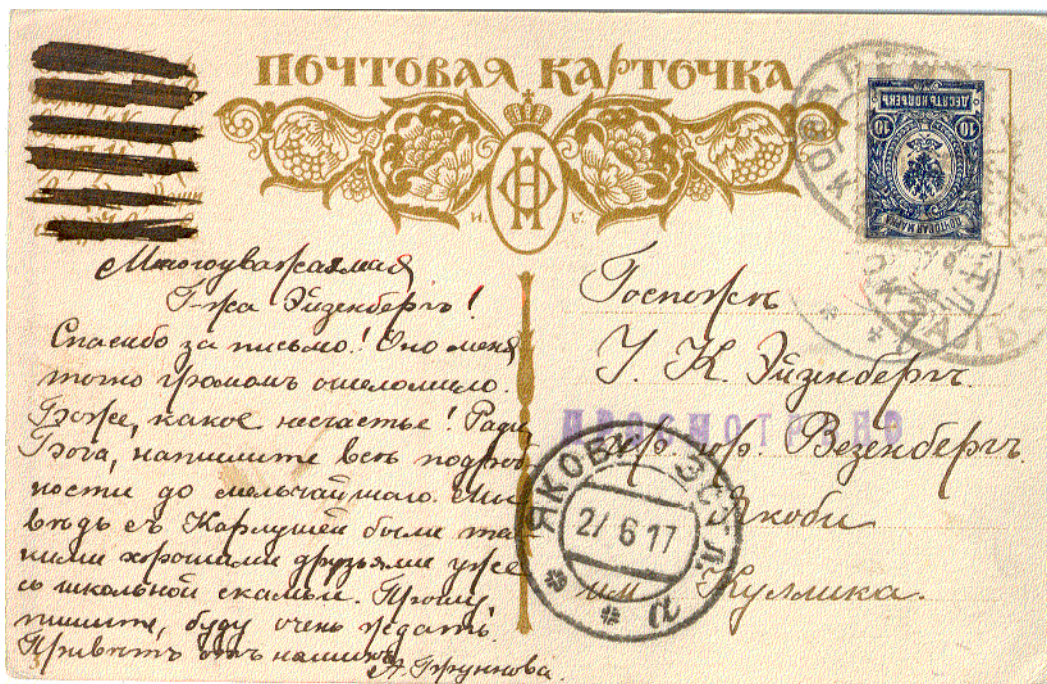 ПОЧТОВАЯ КАРТОЧКА
ДЕСЯТЬ КОПѢЕКЪ
10 10
ПОЧТОВАЯ МАРКА
Многоуважаемая
Г-жа Эйзенбергъ!
Спасибо за письмо! Оно меня
точно громомъ ошеломило.
Боже, какое несчастье! Ради
Бога, напишите всѣ подроб
ности до мельчайшаго. Мы
вѣдь съ Карлушей были та
кими хорошими друзьями уже
со школьной скамьи. Прошу,
пишите, буду очень ждать.
Привѣтъ отъ нашихъ
А. Груннова.
Госпожѣ
У. К. Эйзенбергъ.
ПРОСМОТРѢНО
гор. Везенбергъ.
Якоби
им Куллика.
ЯКОБИ ЭСТЛ.
2/ 6 17
а